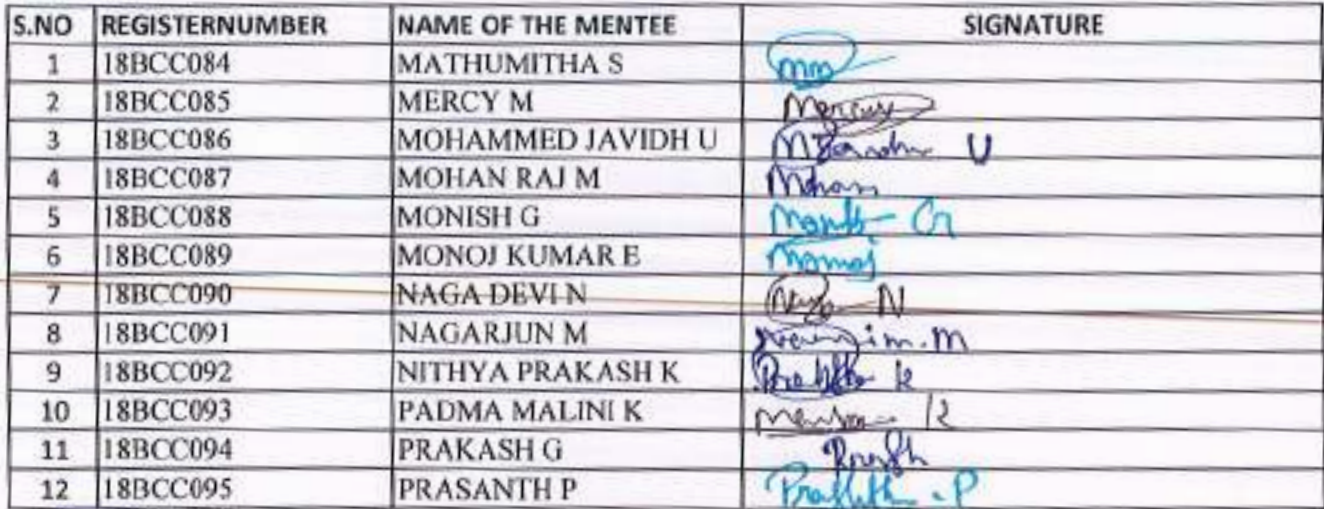 S.NO REGISTERNUMBER NAME OF THE MENTEE SIGNATURE
1 18BCC084 MATHUMITHA S
2 18BCC085 MERCY M Mercy
3 18BCC086 MOHAMMED JAVIDH U U
4 18BCC087 MOHAN RAJ M Mohan
5 18BCC088 MONISH G G
6 18BCC089 MONOJ KUMAR E Monoj
7 18BCC090 NAGA DEVI N N
8 18BCC091 NAGARJUN M
9 18BCC092 NITHYA PRAKASH K K
10 18BCC093 PADMA MALINI K K
11 18BCC094 PRAKASH G
12 18BCC095 PRASANTH P P